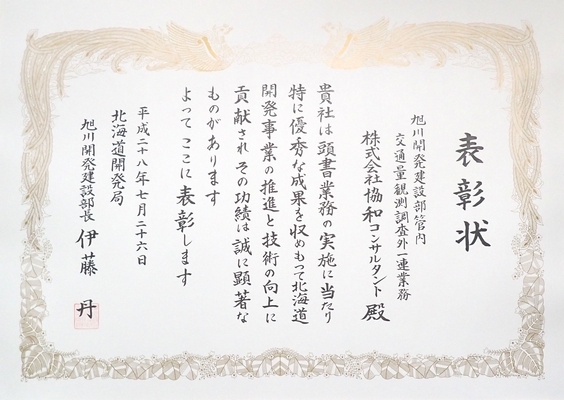 表彰状
旭川開発建設部管内
交通量観測調査外一連業務
株式会社協和コンサルタント 殿
貴社は頭書業務の実施に当たり
特に優秀な成果を収めもって北海道
開発事業の推進と技術の向上に
貢献され その功績は誠に顕著な
ものがあります
よってここに表彰します
平成二十八年七月二十六日
北海道開発局
旭川開発建設部長 伊藤 丹